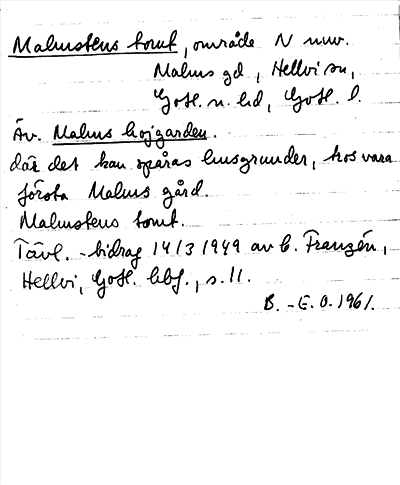 Malmstens tomt, område N nuv.
Malms gd, Hellvi sn,
Gotl. n. hd, Gotl. l.
Äv. Malms hojgarden.
där det kan spåras husgrunder, hos vara
första Malms gård.
Malmstens tomt.
Tävl. -bidrag 14/3 1949 av C. Franzén,
Hellvi, Gotl. hbf., s. 11.
B. -E. O. 1961.